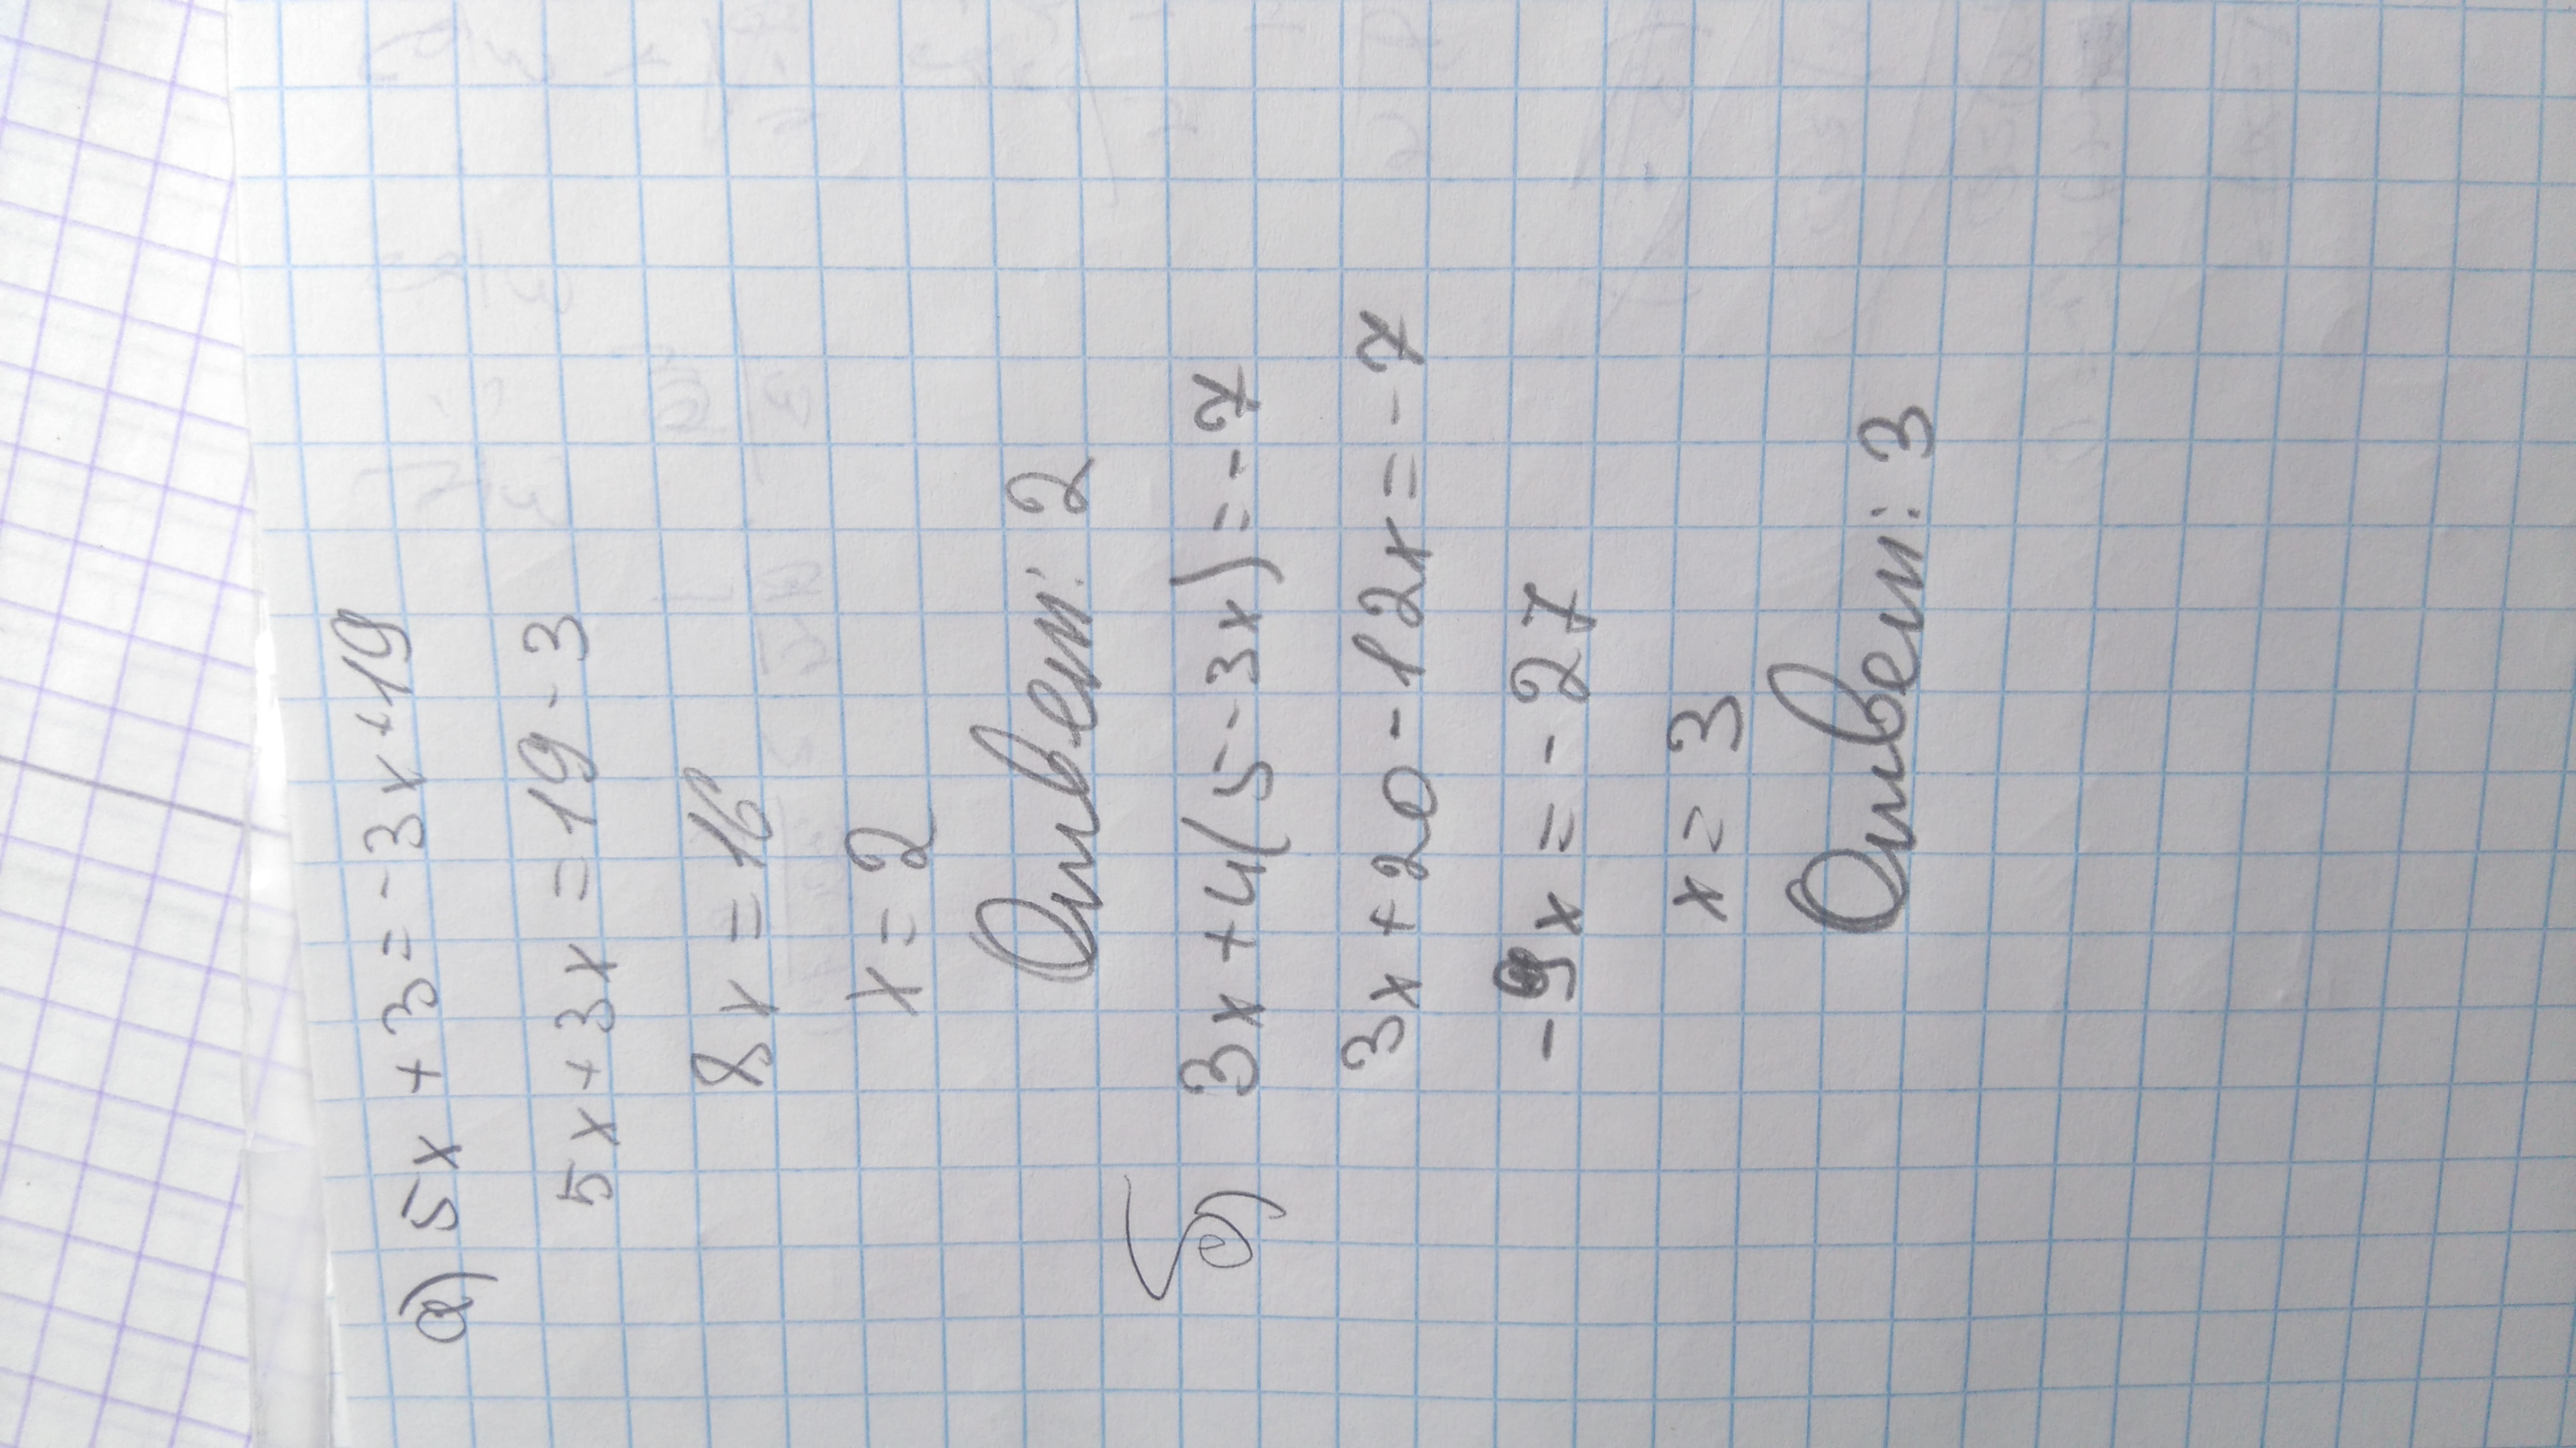 а) 5x + 3 = -3x + 19
5x + 3x = 19 - 3
8x = 16
x = 2
Ответ: 2
б) 3x + 4(5 - 3x) = -7
3x + 20 - 12x = -7
-9x = -27
x = 3
Ответ: 3